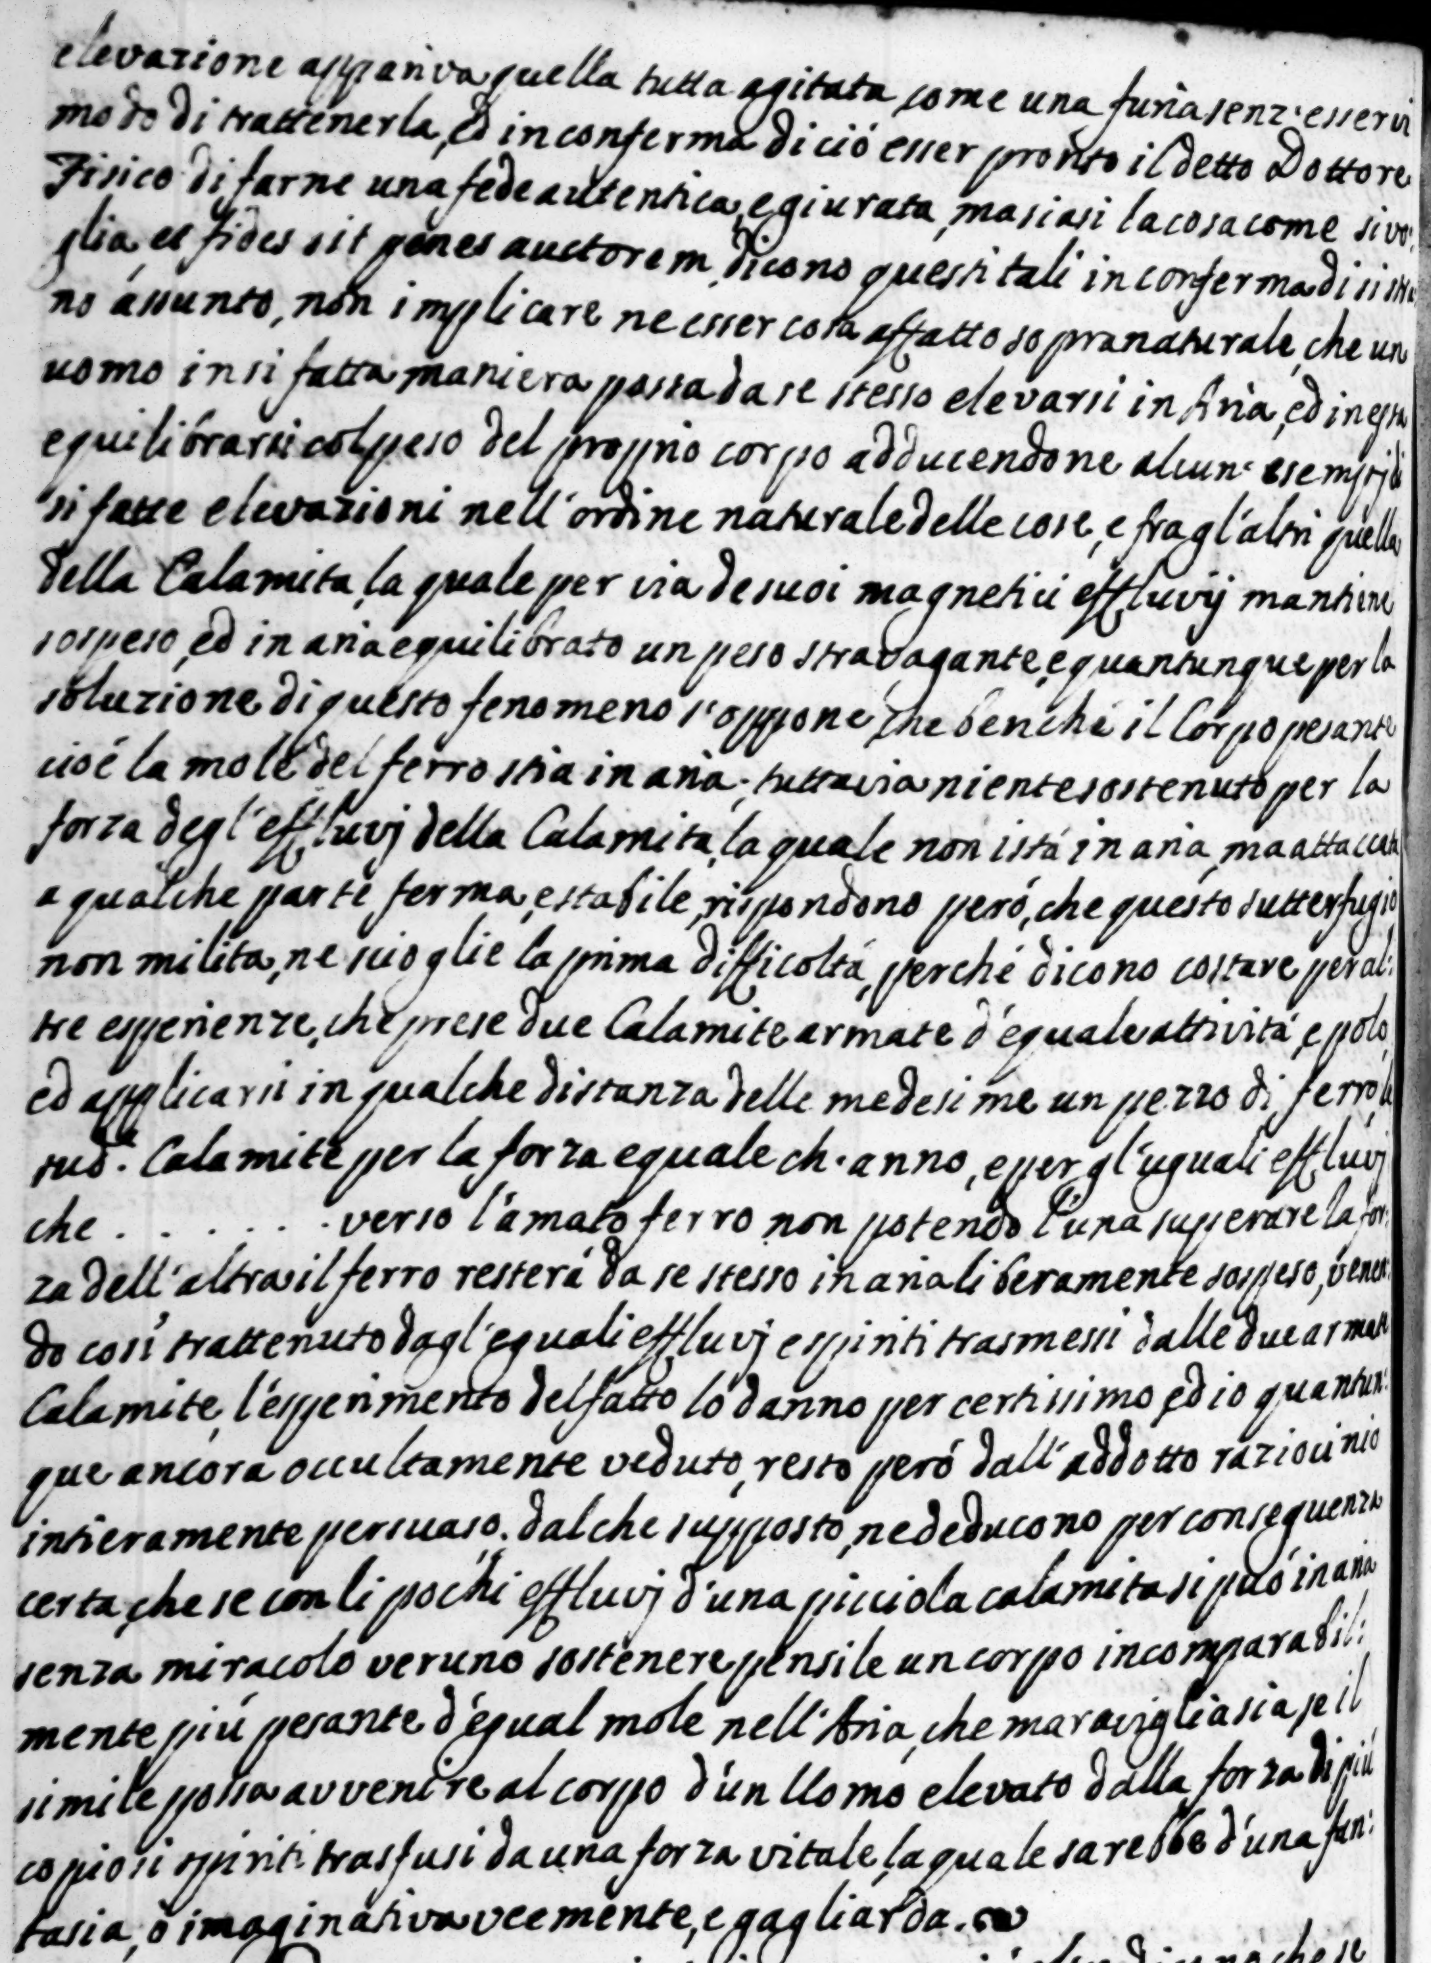 elevazione appariva quella tutta agitata, come una furia senz'esservi
modo di trattenerla, ed in conferma di ciò esser pronto il detto Dottore
Fisico di farne una fede autentica, e giurata, ma siasi la cosa come si vo:
glia, et fides sit penes auctorem, dicono questi tali in conferma di si stra
no assunto, non implicare ne esser cosa affatto sopranaturale, che un
uomo in si fatta maniera possa da se stesso elevarsi in Aria, ed in essa
equilibrarsi col peso del proprio corpo adducendone alcun' esempij di
si fatte elevazioni nell'ordine naturale delle cose, e fra gl'altri quella
della Calamita, la quale per via de suoi magnetici effluvij mantiene
sospeso, ed in aria equilibrato un peso stravagante, e quantunque per la
soluzione di questo fenomeno s'oppone, che benché il Corpo pesante
cioé la mole del ferro stia in aria; tuttavia niente sostenuto per la
forza degl'effluvj della Calamita, la quale non istà in aria, ma attaccata
a qualche parte ferma, e stabile, rispondono però, che questo sutterfugio
non milita, ne scioglie la prima difficoltà, perché dicono costare per al:
tre esperienze, che prese due Calamite armate d'eguale attività, e polo,
ed applicarsi in qualche distanza delle medesime un pezzo di ferro, le
sud.e Calamite per la forza eguale ch'anno, e per gl'uguali effluvj
che . . . . . . . verso l'amato ferro non potendo l'una superare la for:
za dell'altra il ferro resterà da se stesso in aria liberamente sospeso, venen:
do così trattenuto dagl'eguali effluvj e spiriti trasmessi dalle due armate
Calamite, l'esperimento del fatto lo danno per certissimo, ed io quantun:
que ancora occultamente veduto, resto però dall'addotto raziocinio
intieramente persuaso. dal che supposto, ne deducono per conseguenza
certa, che se con li pochi effluvj d'una picciola calamita si può in aria
senza miracolo veruno sostenere pensile un corpo incomparabil:
mente più pesante d'egual mole nell'Aria, che maraviglia sia, se il
simile possa avvenire al corpo d'un Uomo elevato dalla forza di più
copiosi spiriti trasfusi da una forza vitale, la quale sarebbe d'una fan:
tasia, ò imaginativa veemente, e gagliarda.